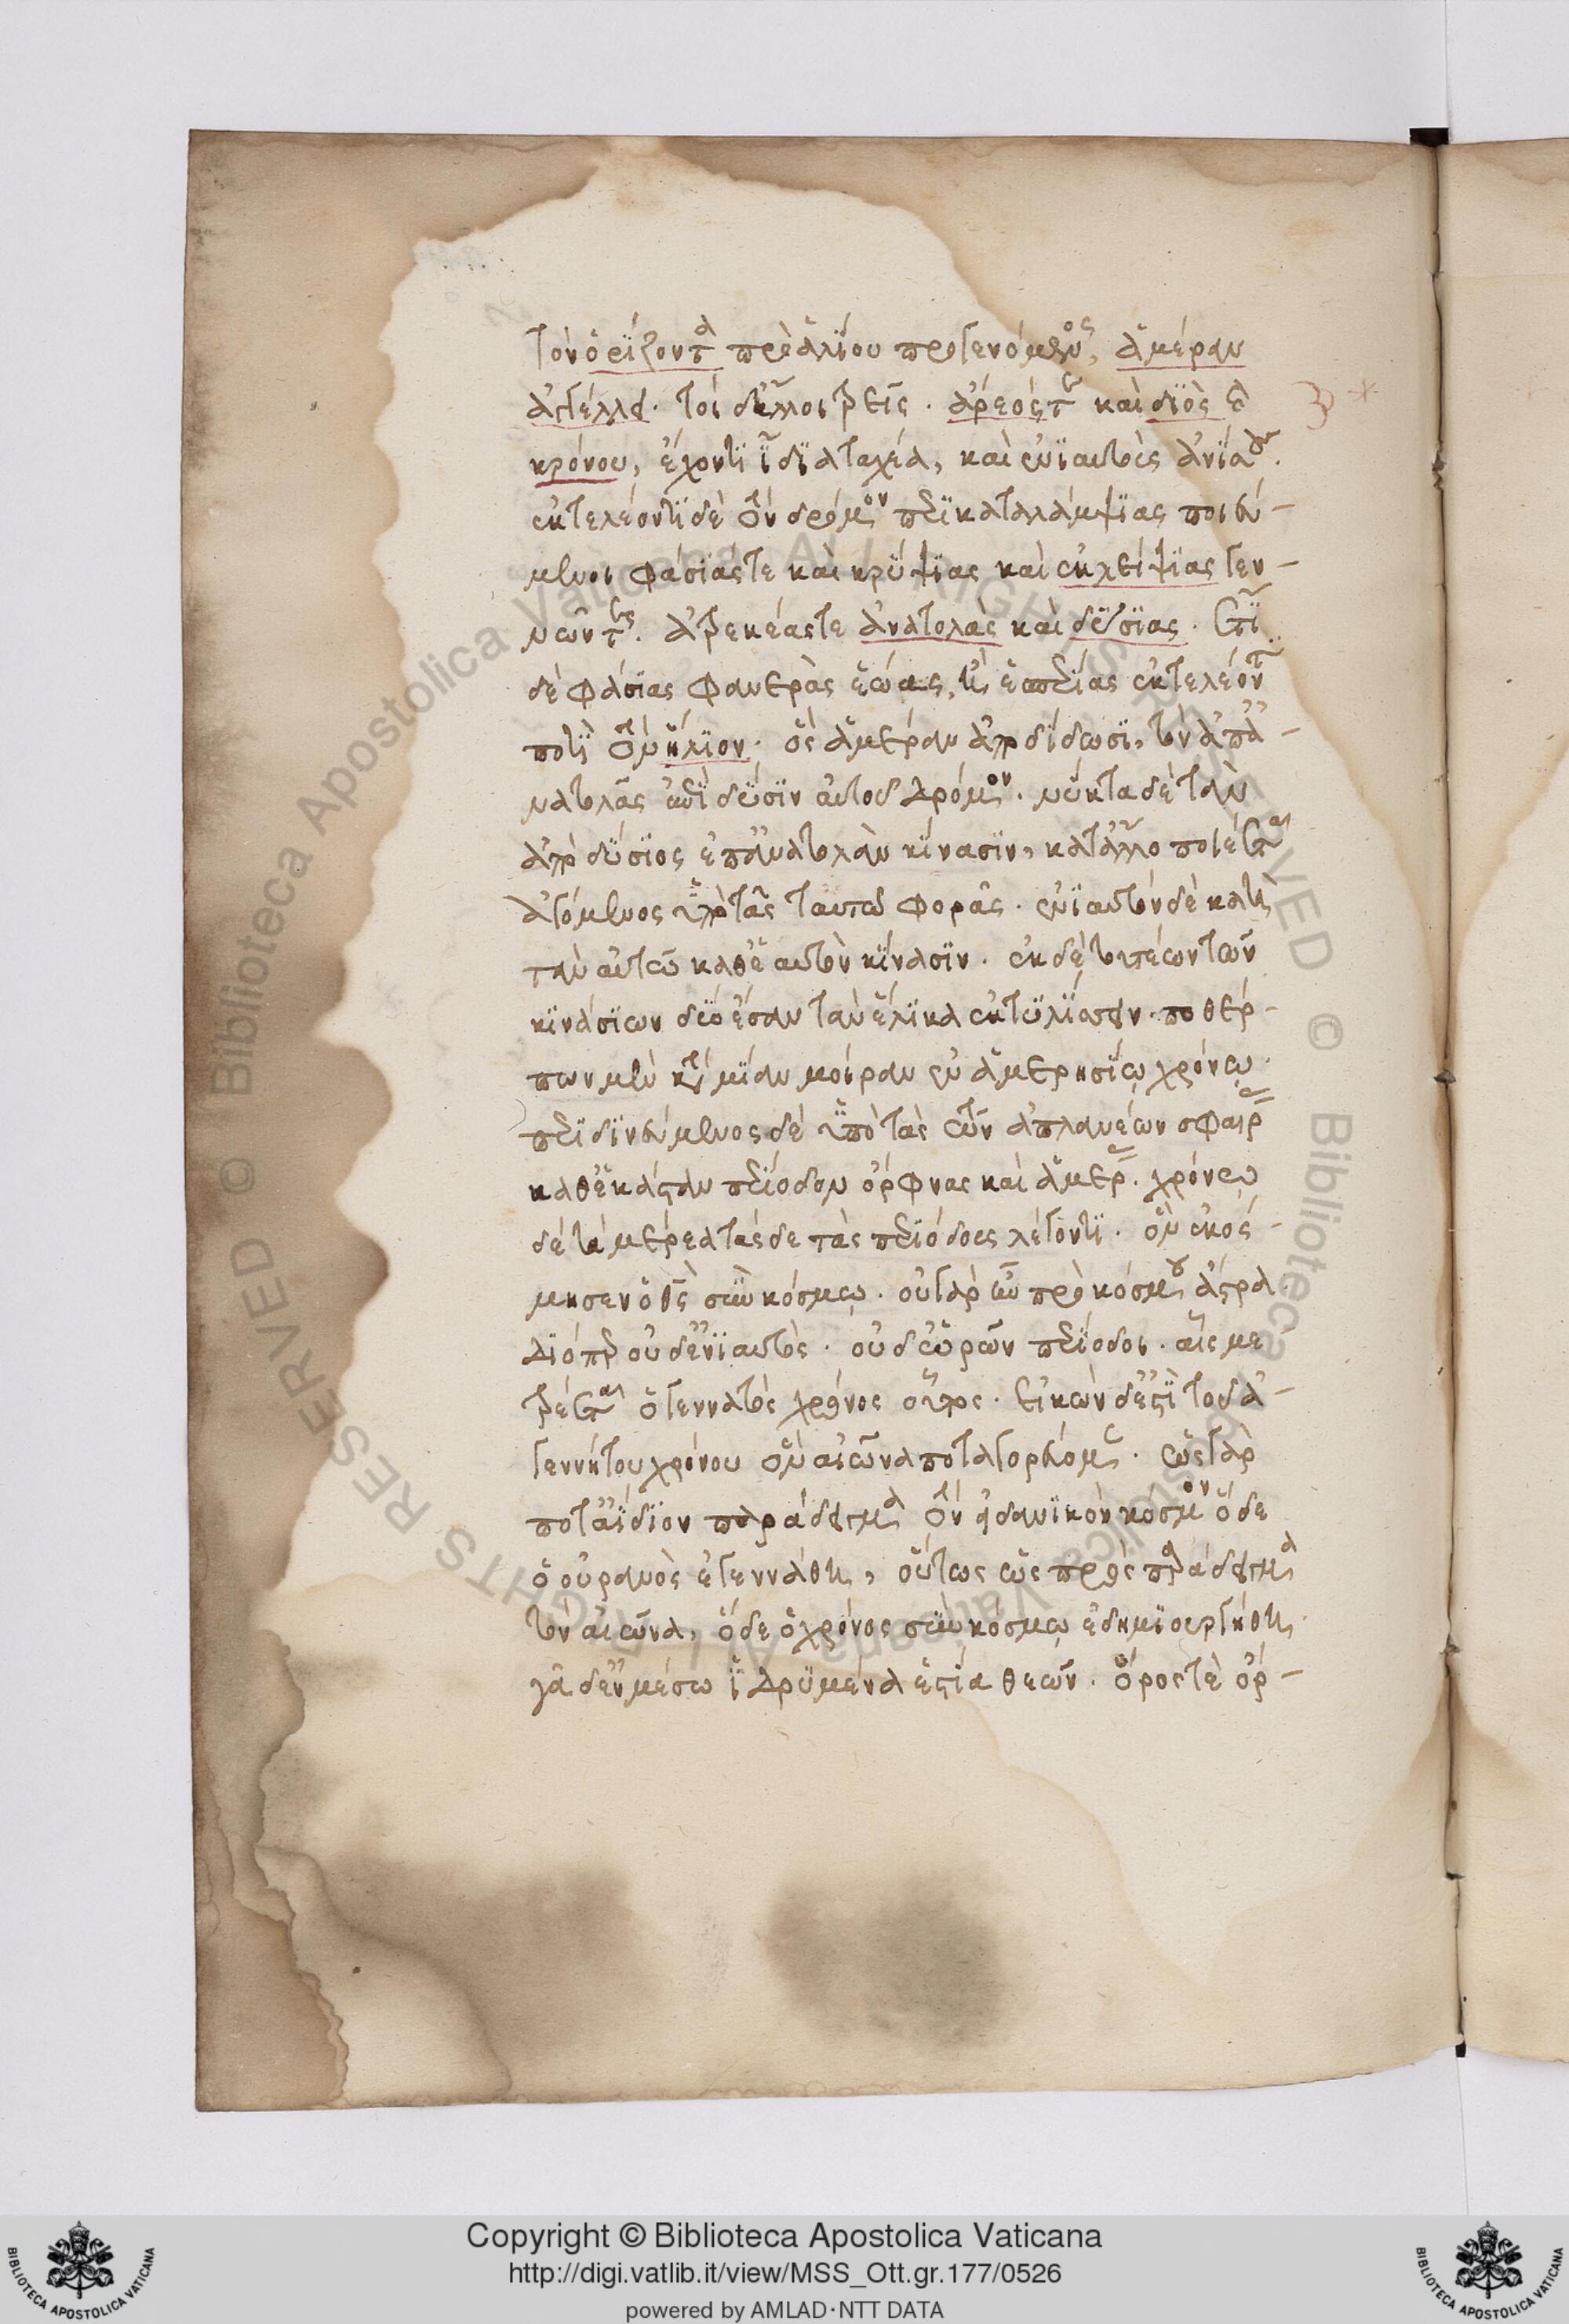 τὸν ὁρίζοντα πρὸ ἁλίου προγενόμενος, ἁμέραν
ἀγγέλλει. τοὶ δ' ἄλλοι τρεῖς. ἄρεός τε καὶ διὸς καὶ
κρόνου, ἔχοντι ἴδια ταχέα, καὶ ἐνιαυτοὺς ἀνίσους.
ἐκτελέοντι δὲ τὸν δρόμον περικαταλάμψιας ποιού-
μενοι φάσιάς τε καὶ κρύψιας καὶ ἐκλείψιας γεν-
νῶντες. ἀτρεκέας τε ἀνατολὰς καὶ δύσιας. ἔτι
δὲ φάσιας φανερὰς ἑῴας, καὶ ἑσπερίας ἐκτελέοντι
ποτὶ τὸν ἥλιον. ὃς ἁμέραν ἀποδίδωσι, τὸν ἀπ' ἀ-
νατολᾶς ἐπὶ δύσιν αὐτοῦ δρόμον. νύκτα δὲ τὰν
ἀπὸ δύσιος ἐπ' ἀνατολὰν κίνασιν, κατ' ἄλλο ποιέεται
ἀγόμενος ὑπὸ τᾶς ταυτῶ φορᾶς. ἐνιαυτὸν δὲ κατὰ
τὰν αὐτῶ καθ' ἑαυτὸν κίνασιν. ἐκ δὲ τουτέων τῶν
κινασίων δύο ἐσᾶν τὰν ἕλικα ἐκτυλίσσει. ποθέρ-
πων μὲν κατὰ μίαν μοῖραν ἐν ἁμερησίῳ χρόνῳ.
περιδινούμενος δὲ ὑπὸ τᾶς τῶν ἀπλανέων σφαίρας
καθ' ἑκάσταν περίοδον ὄρφνας καὶ ἁμέρας. χρόνω
δὲ τὰ μέρεα τάσδε τὰς περιόδους λέγοντι. ὃν ἐκόσ-
μησεν ὁ θεὸς σὺν κόσμῳ. οὐ γὰρ ἦν πρὸ κόσμου ἄστρα.
διόπερ οὐδ' ἐνιαυτὸς. οὐδ' ὡρῶν περίοδοι. αἷς με
τρέεται ὁ γεννατὸς χρόνος οὗτος. εἰκὼν δέ ἐστι τοῦ ἀ-
γεννήτου χρόνου ὃν αἰῶνα ποταγορεύομες. ὡς γὰρ
ποτ' ἀΐδιον παράδειγμα τὸν ἰδανικὸν κόσμον ὅδε
ὁ οὐρανὸς ἐγεννάθη, οὕτως ὡς πρὸς παράδειγμα
τὸν αἰῶνα, ὅδε ὁ χρόνος σὺν κόσμῳ ἐδημιουργήθη.
γᾶ δ' ἐν μέσω ἱδρυμένα ἑστία θεῶν. ὅρος τὲ ὄρ-
Copyright © Biblioteca Apostolica Vaticana
http://digi.vatlib.it/view/MSS_Ott.gr.177/0526
powered by AMLAD·NTT DATA